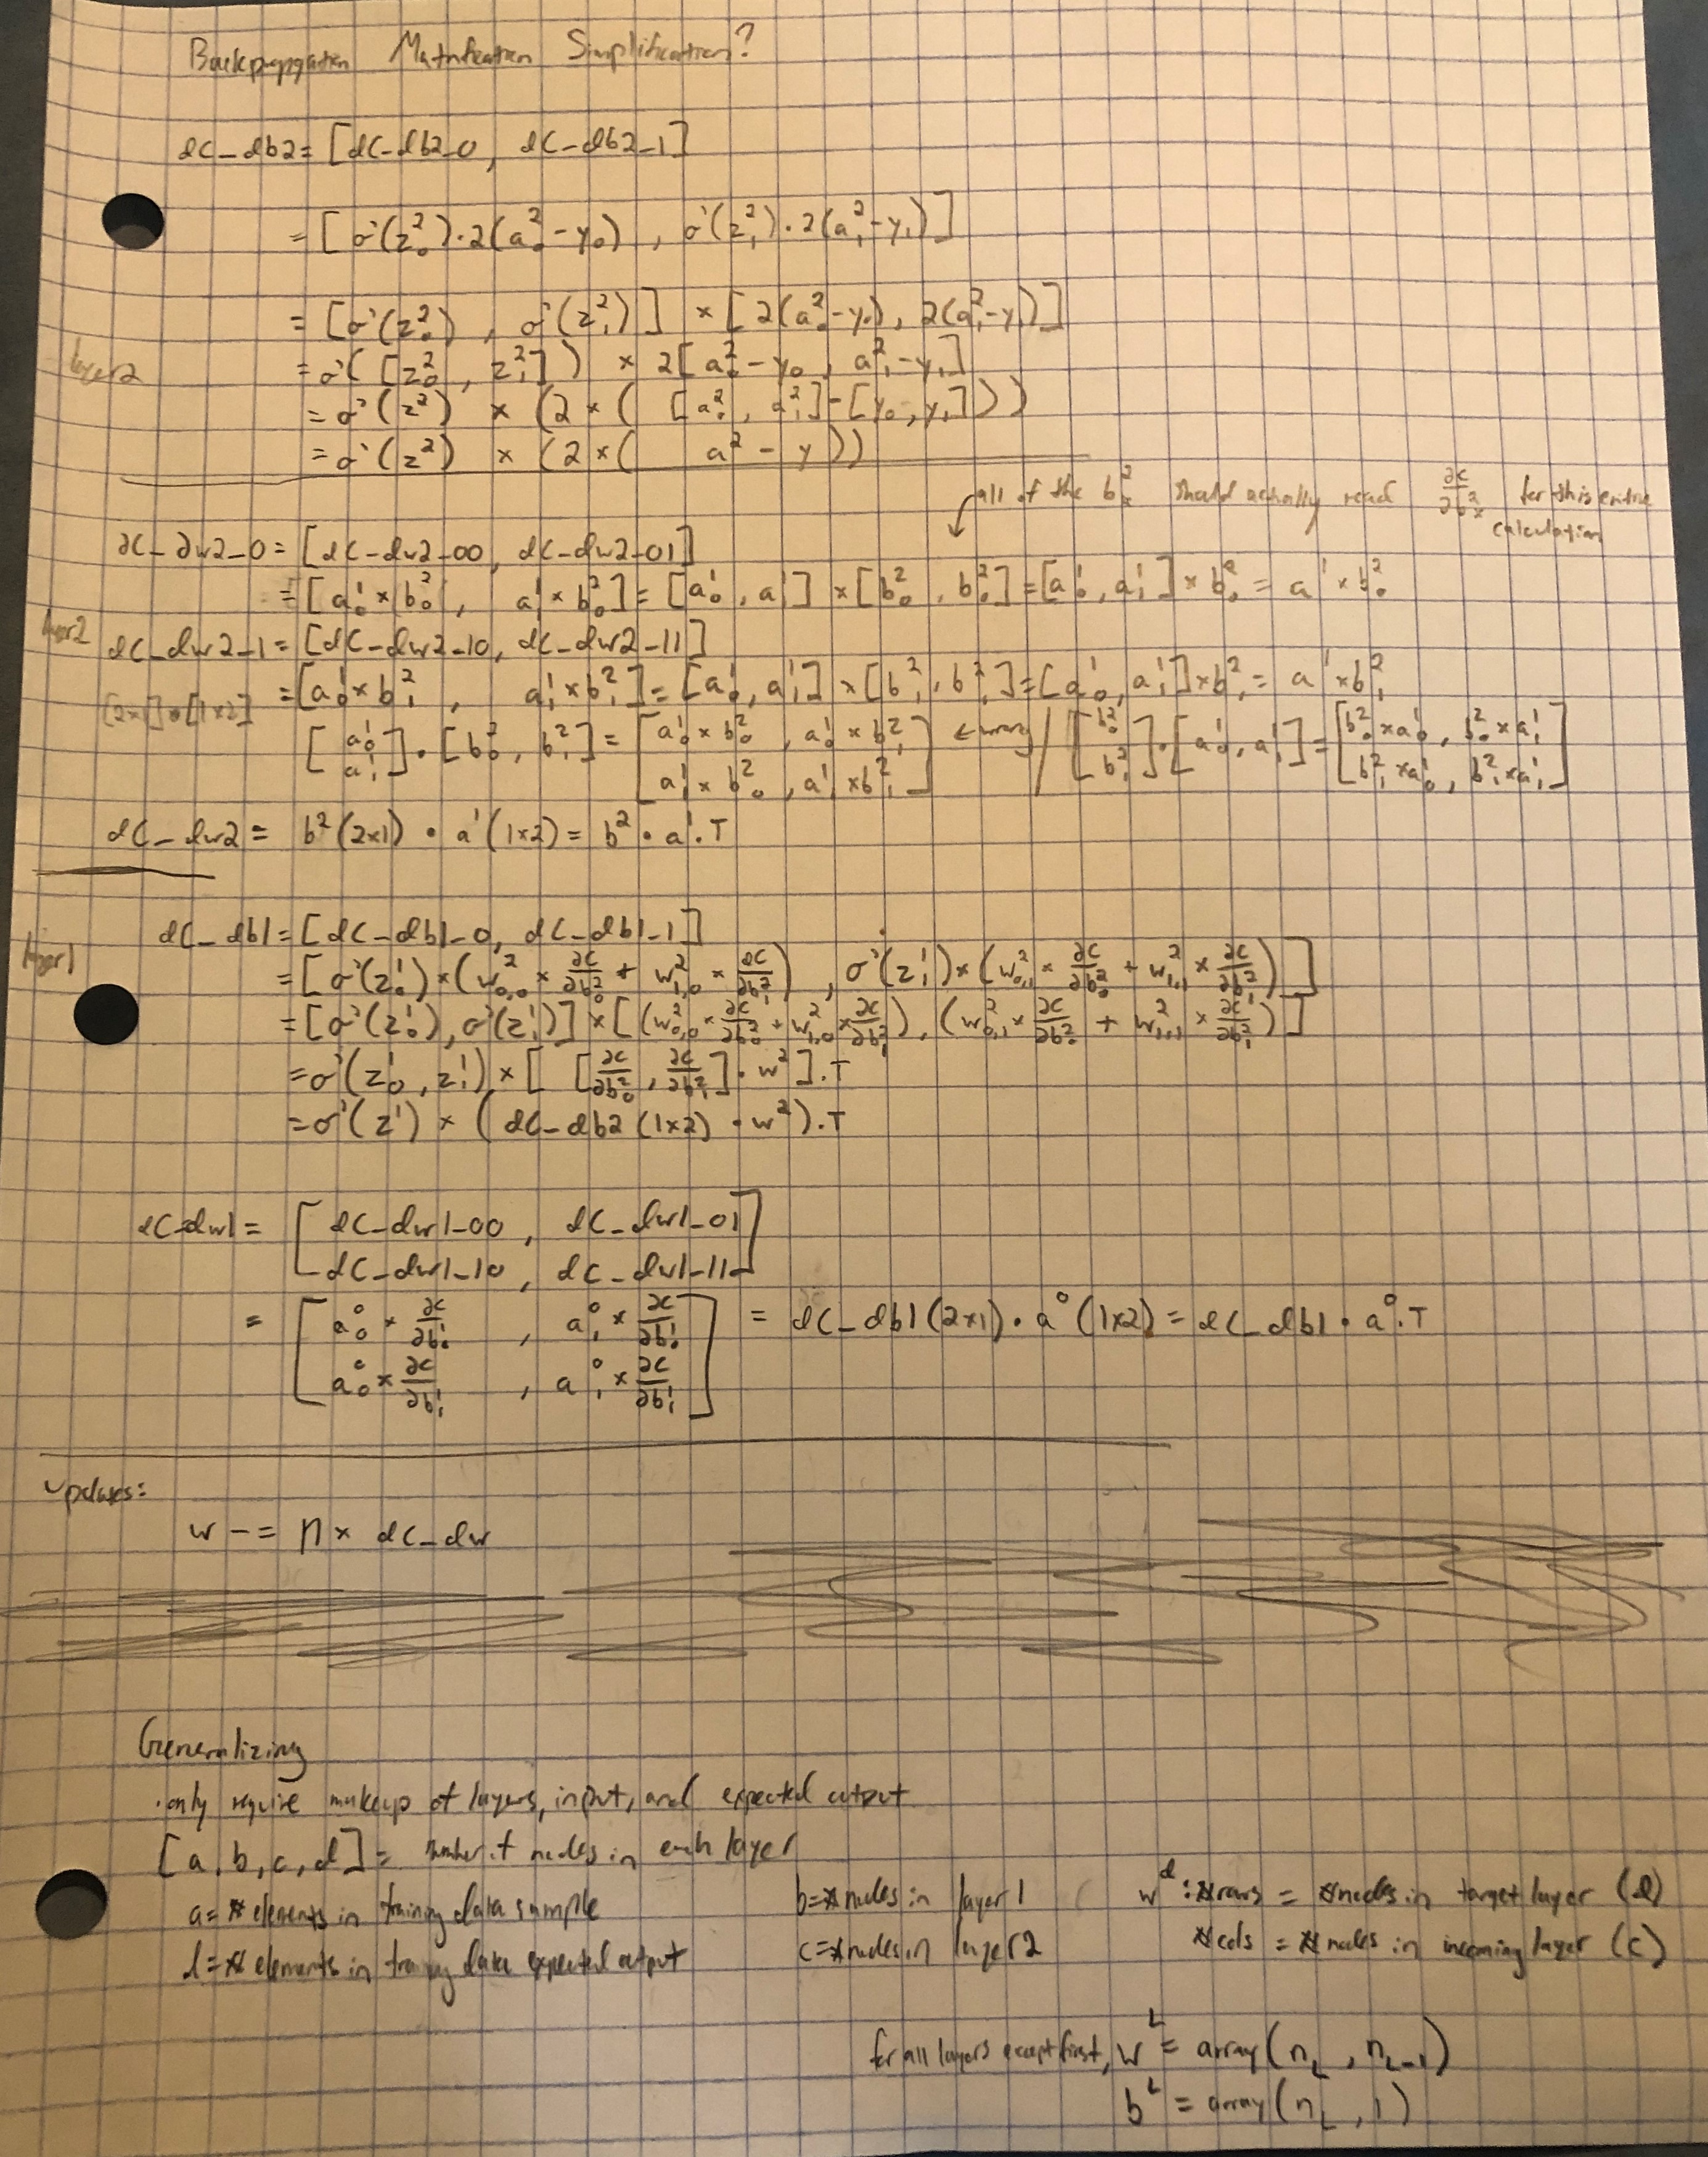 Backpropagation Matrification Simplification?
dC_db2 = [dC_db2_0, dC_db2_1]
= [σ'(z₀²)·2(a₀²-y₀), σ'(z₁²)·2(a₁²-y₁)]
= [σ'(z₀²), σ'(z₁²)] × [2(a₀²-y₀), 2(a₁²-y₁)]
layer2
= σ'([z₀², z₁²]) × 2[a₀²-y₀, a₁²-y₁]
= σ'(z²) × (2×([a₀², a₁²]-[y₀, y₁]))
= σ'(z²) × (2×(a² - y))
all of the bₓ² should actually read ∂C/∂bₓ² for this entire
calculation
∂C_∂w2_0 = [dC_dw2_00, dC_dw2_01]
= [a₀¹×b₀², a₁¹×b₀²] = [a₀¹, a₁¹] × [b₀², b₀²] = [a₀¹, a₁¹] × b₀² = a¹ × b₀²
layer2
dC_dw2_1 = [dC_dw2_10, dC_dw2_11]
= [a₀¹×b₁², a₁¹×b₁²] = [a₀¹, a₁¹] × [b₁², b₁²] = [a₀¹, a₁¹] × b₁² = a¹×b₁²
[2×1]·[1×2]
[a₀¹ a₁¹] · [b₀², b₁²] = [a₀¹×b₀², a₀¹×b₁² ← wrong / [b₀² b₁²] · [a₀¹, a₁¹] = [b₀²×a₀¹, b₀²×a₁¹
a₁¹×b₀², a₁¹×b₁²] b₁²×a₀¹, b₁²×a₁¹]
dC_dw2 = b²(2×1) · a¹(1×2) = b² · a¹.T
layer1
dC_db1 = [dC_db1_0, dC_db1_1]
= [σ'(z₀¹)×(w₀,₀² × ∂C/∂b₀² + w₁,₀² × ∂C/∂b₁²), σ'(z₁¹)×(w₀,₁² × ∂C/∂b₀² + w₁,₁² × ∂C/∂b₁²)]
= [σ'(z₀¹), σ'(z₁¹)] × [(w₀,₀² × ∂C/∂b₀² + w₁,₀² × ∂C/∂b₁²), (w₀,₁² × ∂C/∂b₀² + w₁,₁² × ∂C/∂b₁²)]
= σ'(z₀¹, z₁¹) × [[∂C/∂b₀², ∂C/∂b₁²] · w²].T
= σ'(z¹) × (dC_db2(1×2) · w²).T
dC_dw1 = [dC_dw1_00, dC_dw1_01
dC_dw1_10, dC_dw1_11]
= [a₀⁰ × ∂C/∂b₀¹, a₁⁰ × ∂C/∂b₀¹ = dC_db1(2×1) · a⁰(1×2) = dC_db1 · a⁰.T
a₀⁰ × ∂C/∂b₁¹, a₁⁰ × ∂C/∂b₁¹]
Updates:
w -= η × dC_dw
Generalizing
·only require makeup of layers, input, and expected output
[a, b, c, d] = number of nodes in each layer
a = # elements in training data sample
b = # nodes in layer 1
w^d: # rows = # nodes in target layer (d)
d = # elements in training data expected output
c = # nodes in layer 2
# cols = # nodes in incoming layer (c)
for all layers except first, w^L = array(n_L, n_L-1)
b^L = array(n_L, 1)